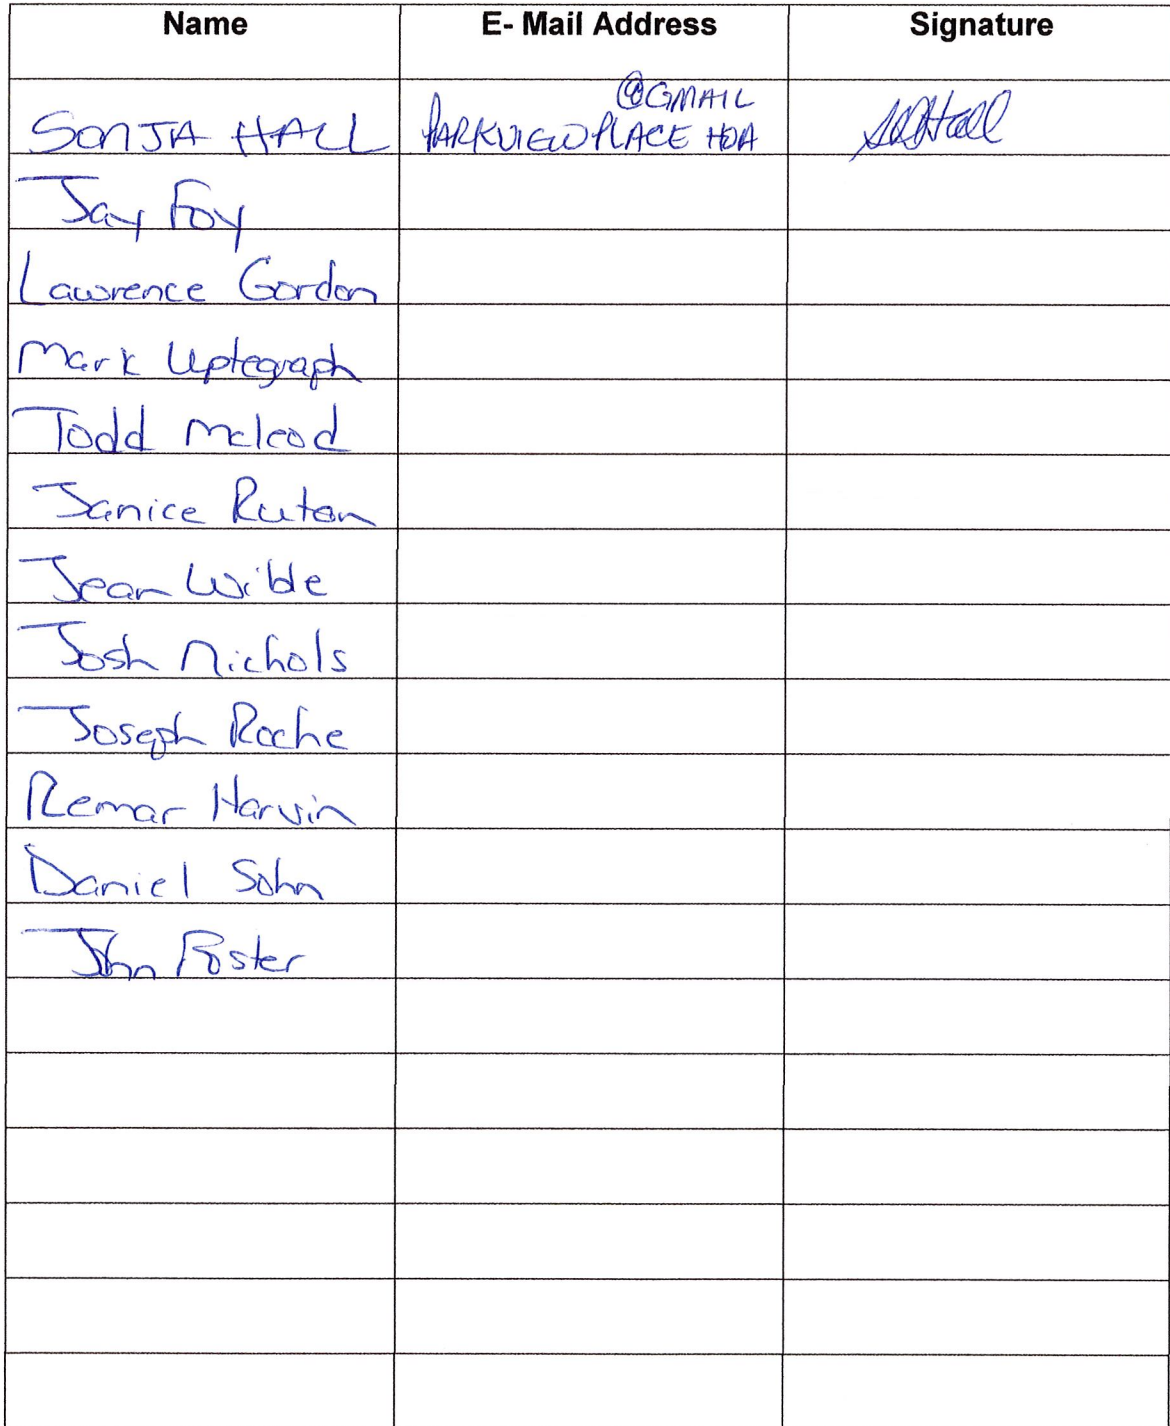 Name E- Mail Address Signature
@GMAIL
SONJA HALL PARKVIEWPLACE HOA SDHall
Jay Foy
Lawrence Gordon
Mark Uptegraph
Todd Mcleod
Janice Ruton
Jean Wilde
Josh Nichols
Joseph Roche
Remar Harvin
Daniel Sohn
John Foster